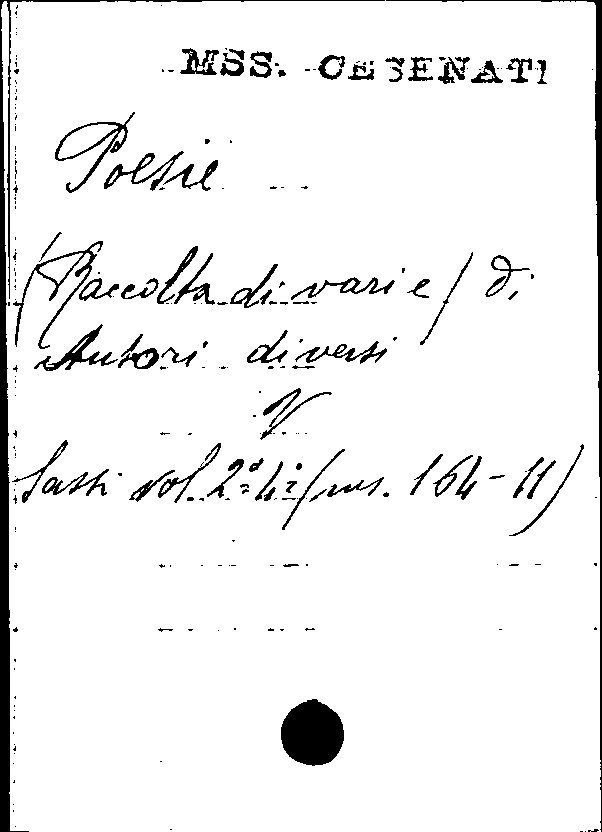 MSS. CESENATI
Poesie
(Raccolta di varie) di
Autori diversi
V
Sassi vol. 2º 4º (ms. 164-11)